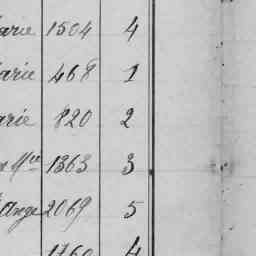 arie 1504 4
arie 468 1
arie 820 2
n Mce 1363 3
Ange 2069 5
1760 4